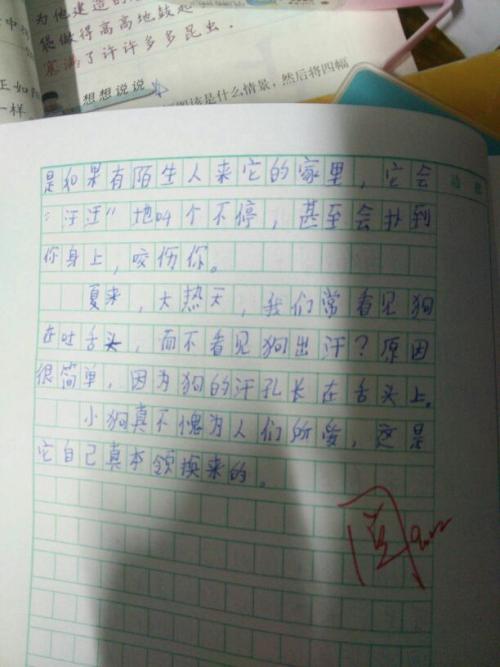 为他建造的
袋做得高高地鼓起
塞满了许许多多昆虫.
想想说说
该是什么情景，然后将四幅
正如
一样
是如果有陌生人来它的家里，它会
“汪汪”地叫个不停，甚至会扑到
你身上，咬伤你。
夏来，大热天，我们常看见狗
在吐舌头，而不看见狗出汗？原因
很简单，因为狗的汗孔长在舌头上。
小狗真不愧为人们所爱，这是
它自己真本领换来的。
阅